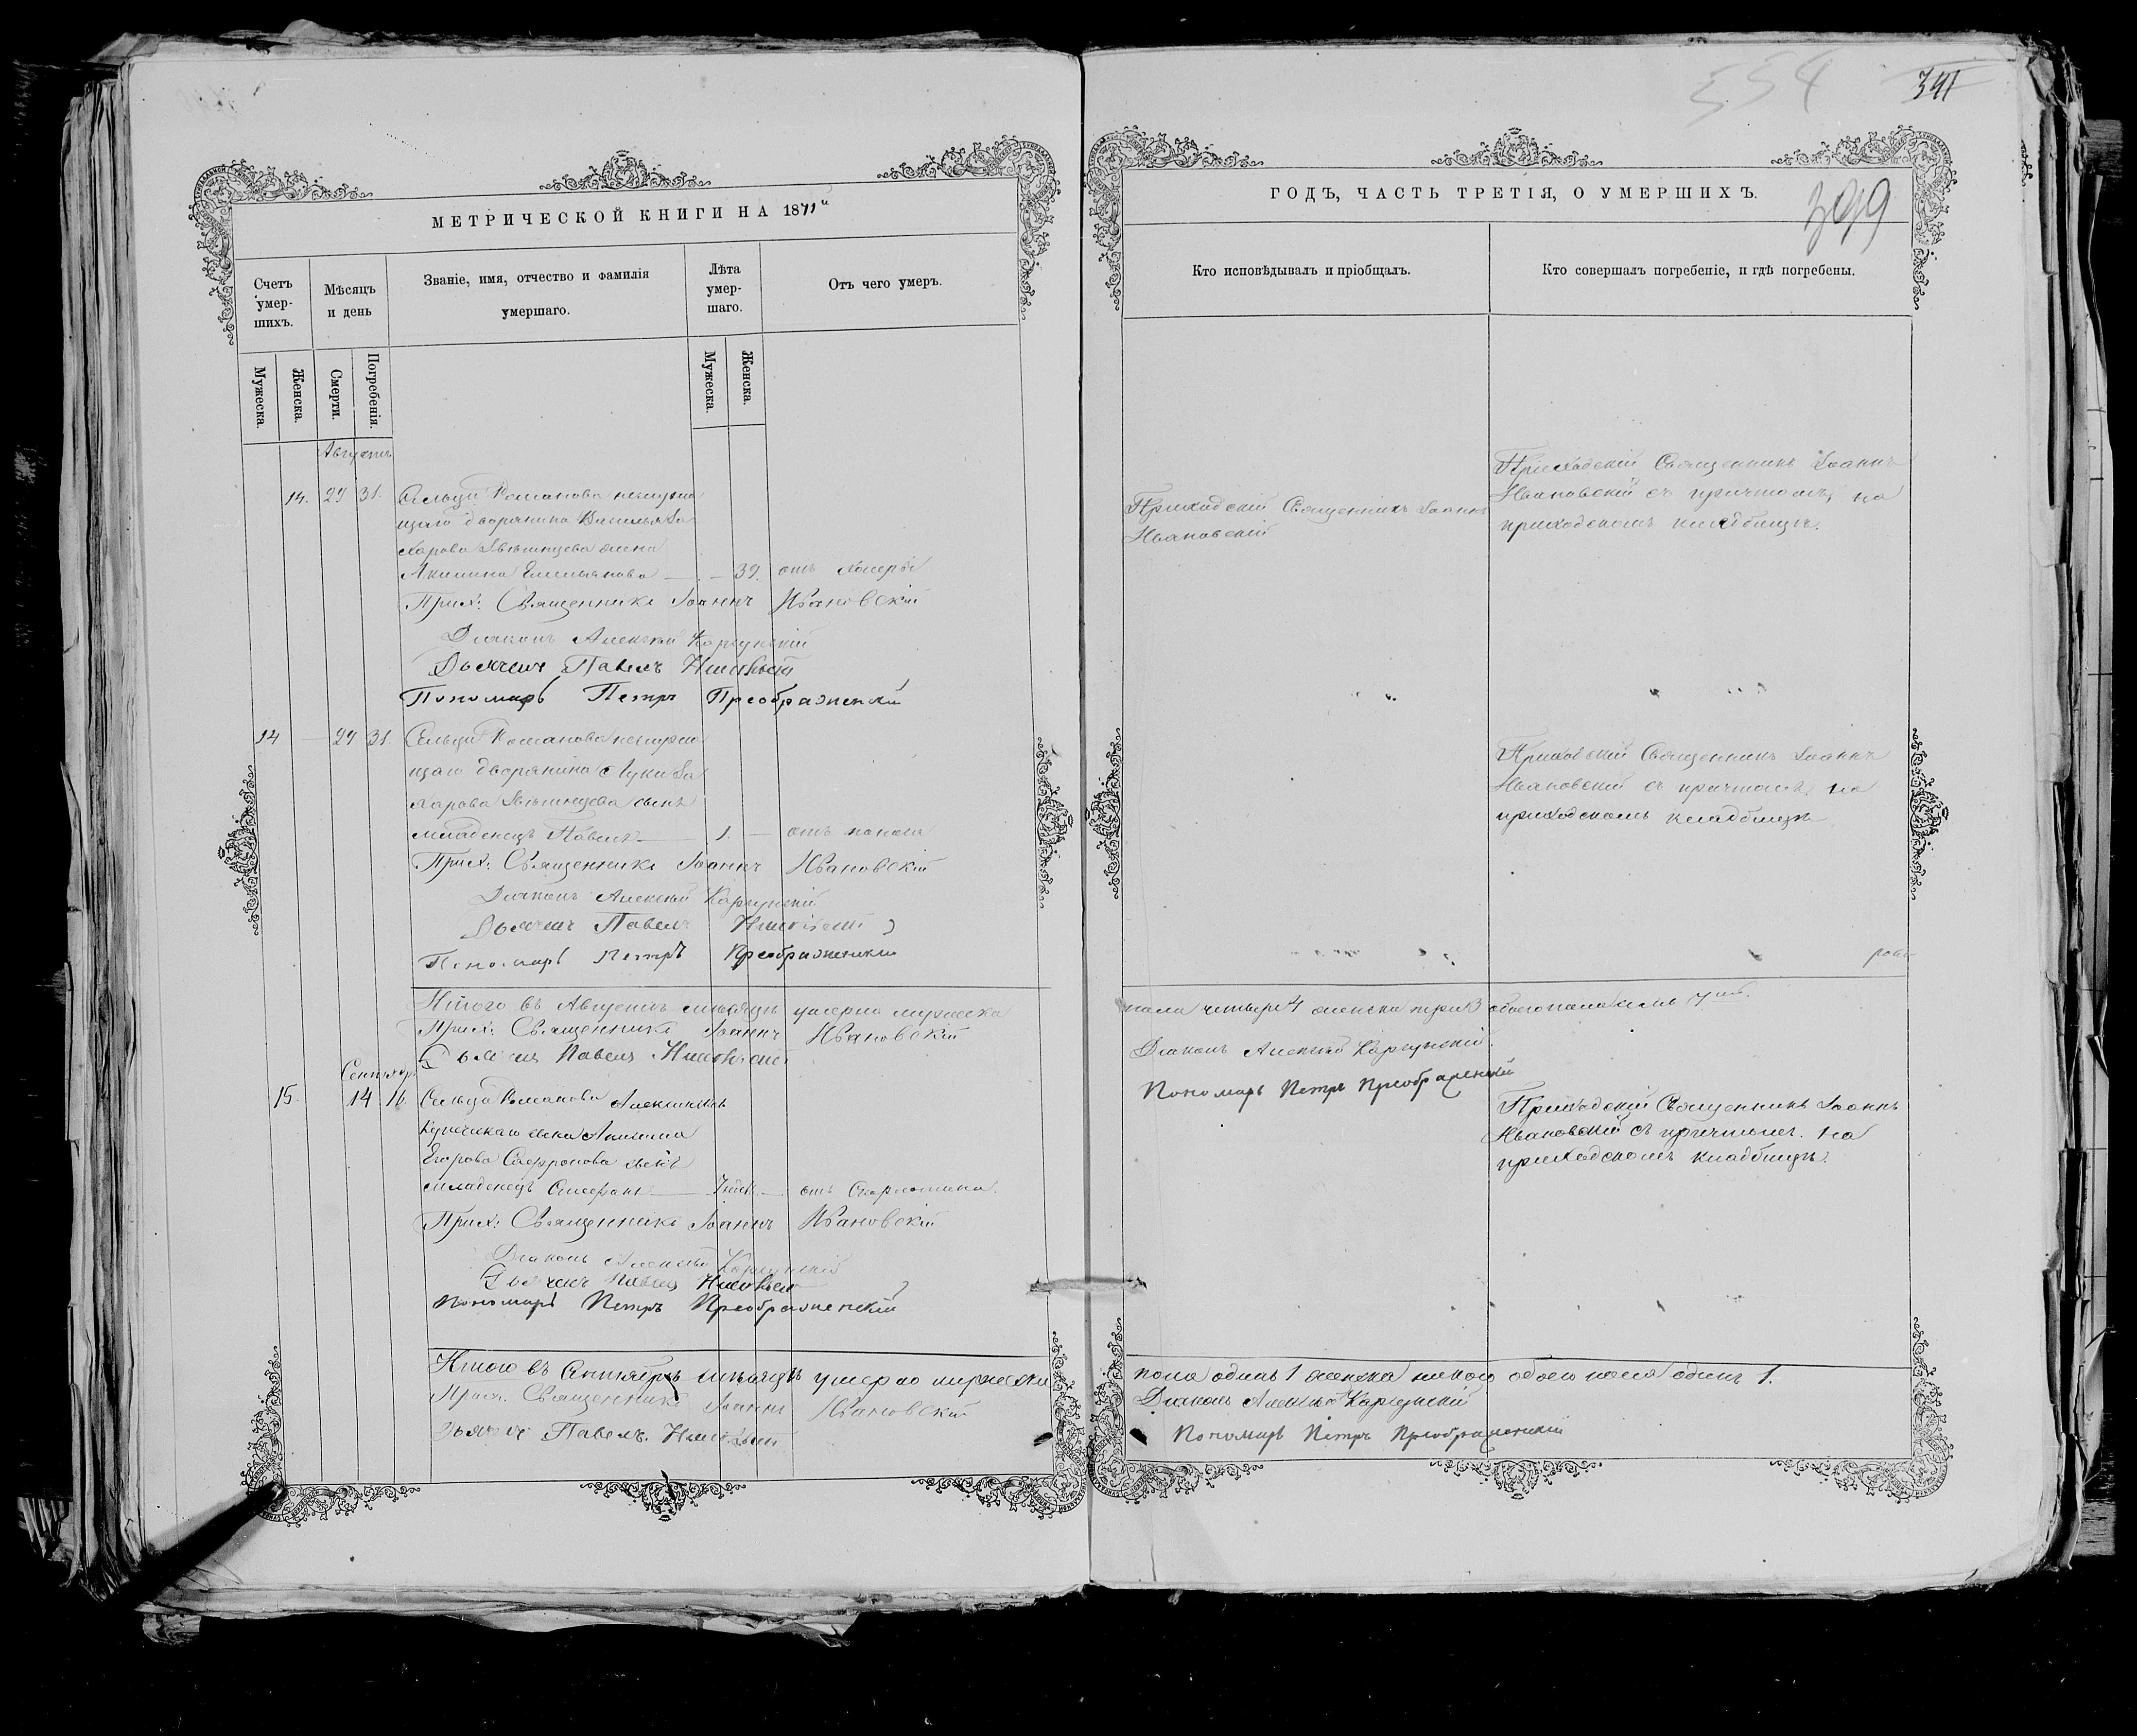 554
341
399
МЕТРИЧЕСКОЙ КНИГИ НА 1871й
ГОДЪ, ЧАСТЬ ТРЕТІЯ, О УМЕРШИХЪ.
Счетъ умер-шихъ.
Мѣсяцъ и день
Званіе, имя, отчество и фамилія
умершаго.
Лѣта умер-шаго.
Отъ чего умеръ.
Кто исповѣдывалъ и пріобщалъ.
Кто совершалъ погребеніе, и гдѣ погребены.
Мужеска.
Женска.
Смерти.
Погребенія.
Мужеска.
Женска.
Августъ
14. 29 31. Сельца Романова неслужа
щаго дворянина Василья За
харова жена
Акилина Емельянова — 39. отъ холеры
Приходскій Священникъ Іоаннъ
Ивановскій
Приходскій Священникъ Іоаннъ
Ивановскій съ причтомъ, на
приходскомъ кладбищѣ.
Прих: Священникъ Іоаннъ Ивановскій
Діаконъ Алексѣй
Дьячекъ Павелъ
Пономарь Петръ Преображенскій
14 — 29 31. Сельца Романова неслужа
щаго дворянина Луки За
харова сынъ
младенецъ Павелъ — 1. — отъ поноса
Приходскій Священникъ Іоаннъ
Ивановскій съ причтомъ, на
приходскомъ кладбищѣ
Прих: Священникъ Іоаннъ Ивановскій
Діаконъ Алексѣй
Дьячекъ Павелъ
Пономарь Петръ Преображенскій
Итого въ Августѣ мѣсяцѣ умерло мужеска
пола четыре 4 женска три 3 обоего пола семь 7мь.
Прих: Священникъ Іоаннъ Ивановскій
Діаконъ Алексѣй
Дьячекъ Павелъ
Пономарь Петръ Преображенскій
Сентябр
15. 14 16 Сельца Романова
Купеческаго сына
Егорова Сафронова сынъ
младенецъ — отъ
Приходскій Священникъ Іоаннъ
Ивановскій съ причтомъ. на
приходскомъ кладбищѣ.
Прих: Священникъ Іоаннъ Ивановскій
Діаконъ Алексѣй
Дьячекъ Павелъ
Пономарь Петръ Преображенскій
Итого въ Сентябрѣ мѣсяцѣ умерло мужеска
пола одинъ 1 женска никого обоего пола одинъ 1.
Прих. Священникъ Іоаннъ Ивановскій
Діаконъ Алексѣй
Дьячекъ Павелъ
Пономарь Петръ Преображенскій